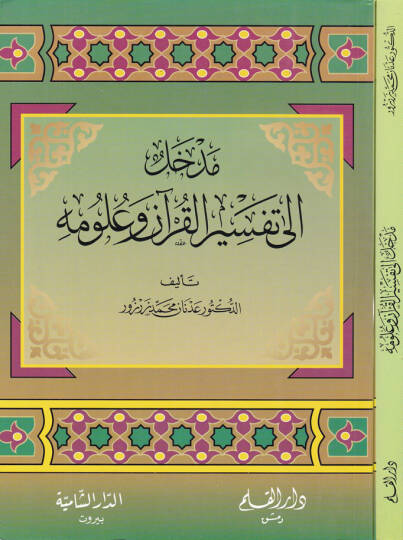 مدخل
إلى تفسير القرآن وعلومه
تأليف
الدكتور عدنان محمد زرزور
دار القلم
دمشق
الدار الشامية
بيروت
الدكتور عدنان محمد زرزور
مدخل إلى تفسير القرآن وعلومه
دار القلم